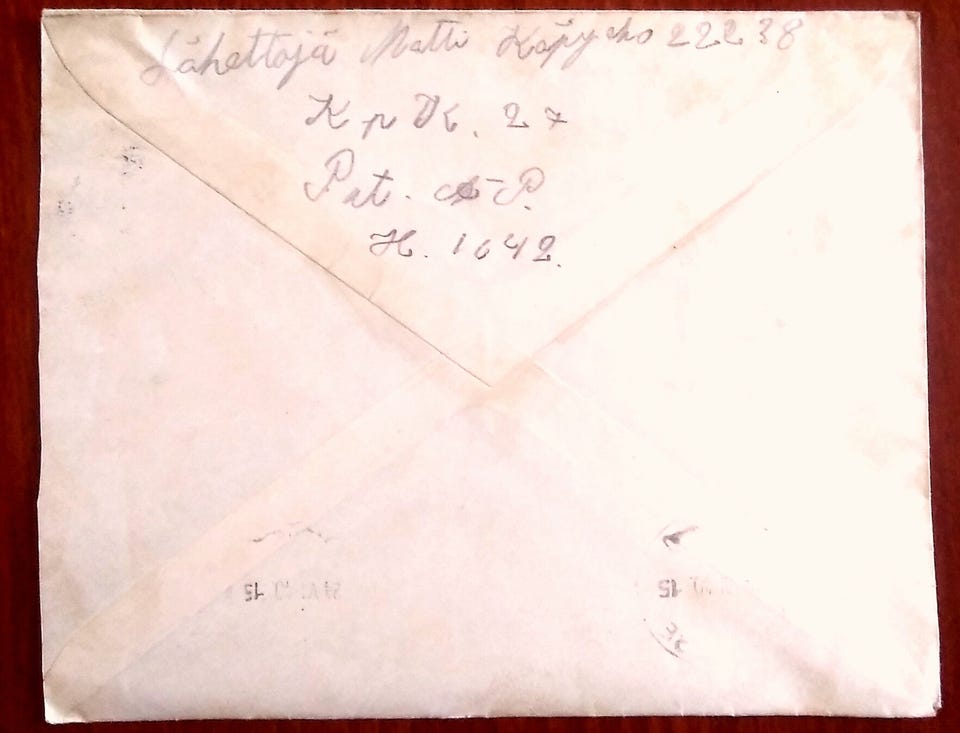 Lähettäjä Matti Käpyaho 22238
KpK. 27
Pat. P.
H. 1642.
15
15